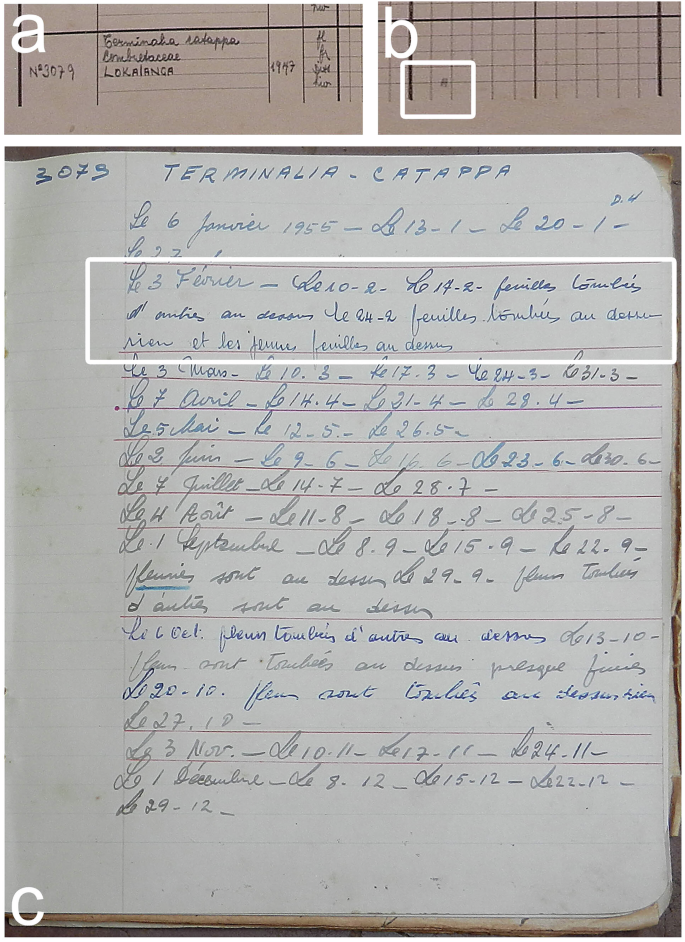 a
Terminalia catappa
Combretaceae
Nº3079 LOKAIANGA 1947
fl
fr
hiv
b
#
3079 TERMINALIA - CATAPPA
D.4
Le 6 Janvier 1955 - Le 13-1 - Le 20-1-
Le 27
Le 3 Février - Le 10-2- Le 17-2- feuilles tombés
d'autres au dessus Le 24-2 feuilles tombés au dessu
rien et les jeunes feuilles au dessus
Le 3 Mars- Le 10.3 - Le 17.3 - Le 24-3- Le 31-3-
Le 7 Avril - Le 14.4 - Le 21-4 - Le 28.4-
Le 5 Mai - Le 12-5.- Le 26.5-
Le 2 Juin - Le 9-6 - Le 16.6 - Le 23-6- Le 30.6-
Le 7 Juillet - Le 14-7 - Le 28.7 -
Le 4 Août - Le 11-8 - Le 18-8 - Le 25-8-
Le 1 Septembre - Le 8.9 - Le 15.9 - Le 22-9-
fleuries sont au dessus Le 29-9- fleurs tombés
d'autres sont au dessus
Le 6 Oct. fleurs tombés d'autres au dessus Le 13-10-
fleurs sont tombées au dessus presque finies
Le 20-10. fleurs sont tombés au dessus rien
Le 27.10-
Le 3 Nov. - Le 10.11- Le 17-11- Le 24-11-
Le 1 Décembre - Le 8-12- Le 15-12- Le 22-12-
Le 29-12-
c